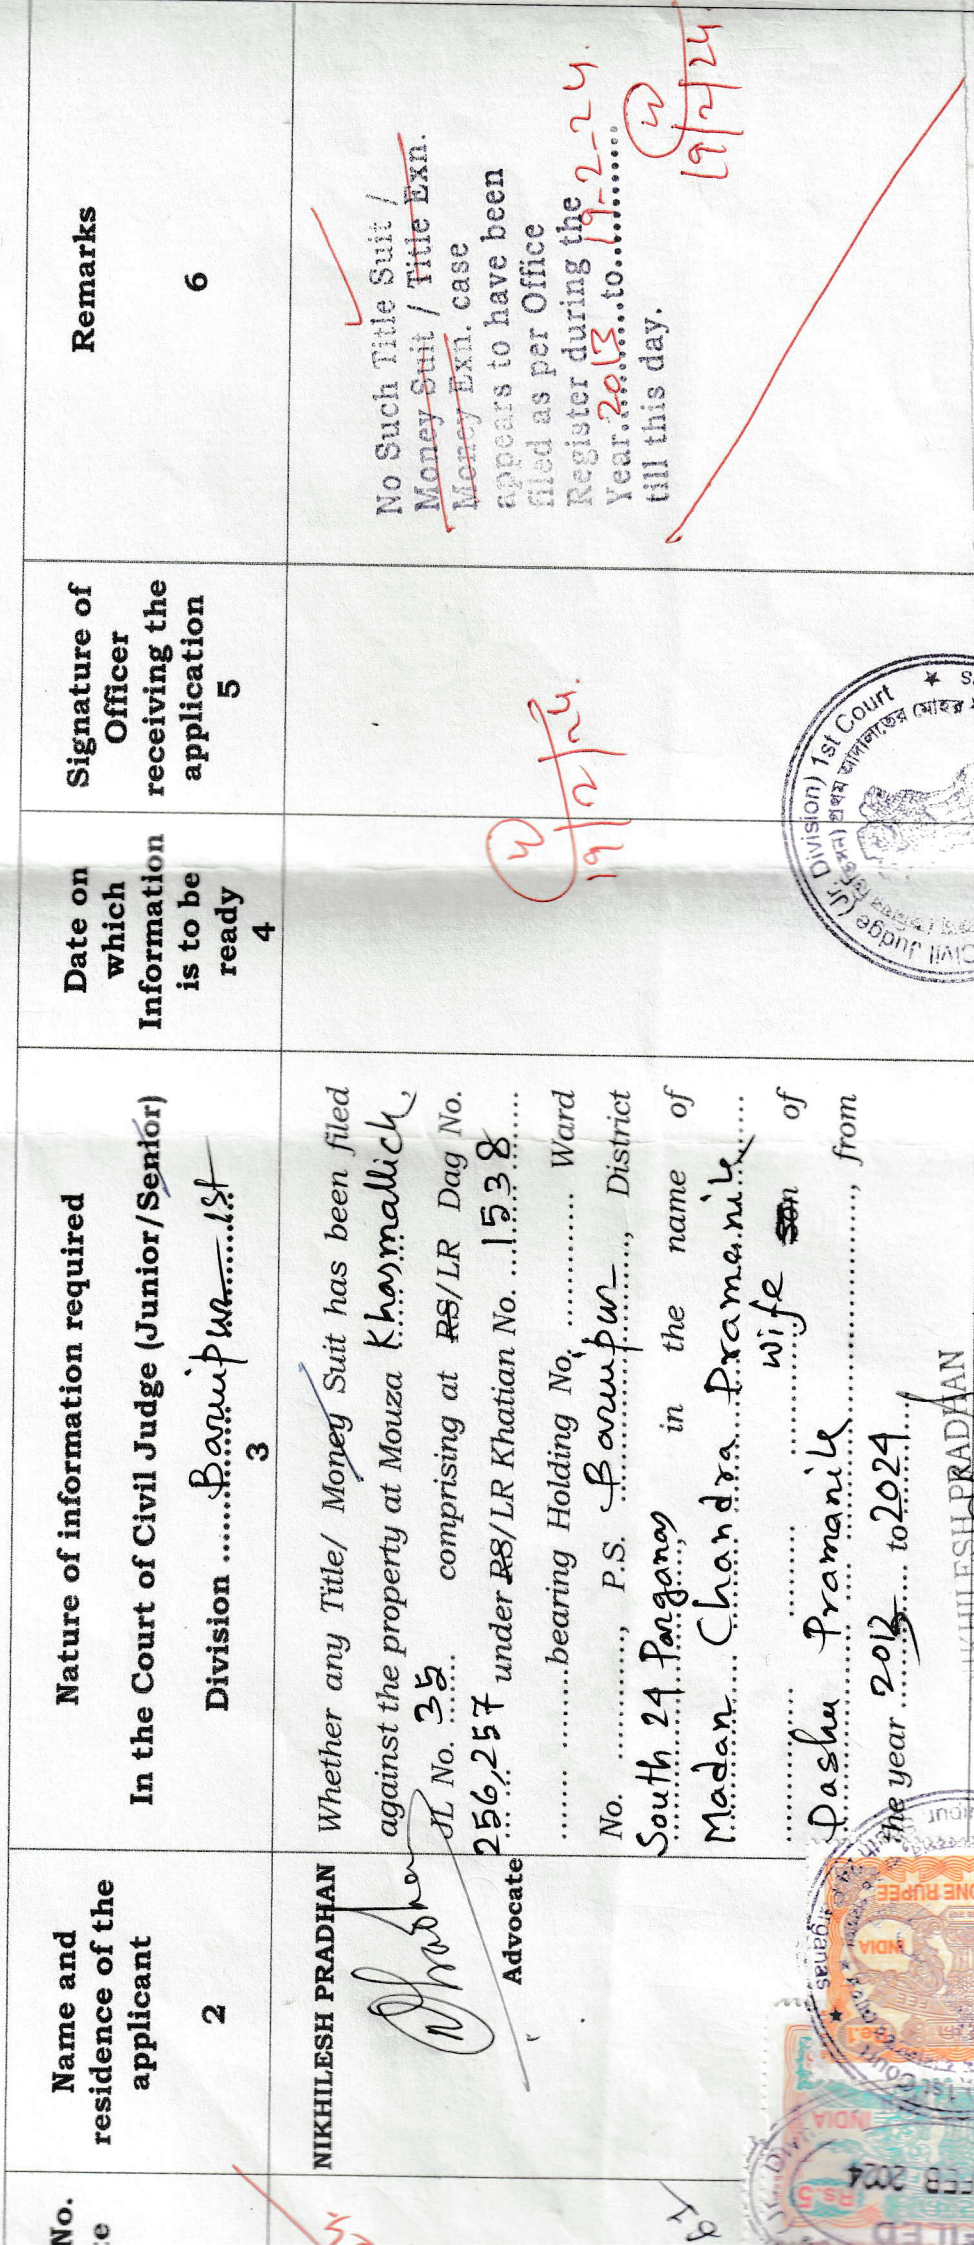 No.
Name and
residence of the
applicant
2
Nature of information required
In the Court of Civil Judge (Junior/Senior)
Division ........Baruipur.......1st
3
Date on
which
Information
is to be
ready
4
Signature of
Officer
receiving the
application
5
Remarks
6
NIKHILESH PRADHAN
Advocate
Whether any Title/ Money Suit has been filed
against the property at Mouza Khasmallick,
JL No. 35 comprising at RS/LR Dag No.
256,257 under RS/LR Khatian No. ...1538
bearing Holding No. Ward
No. ........, P.S. Baruipur, District
South 24 Parganas, in the name of
Madan Chandra Pramanik
wife son of
Dashu Pramanik, from
the year 2013 to 2024
NIKHILESH PRADHAN
19/2/24.
No Such Title Suit /
Money Suit / Title Exn.
Money Exn. case
appears to have been
filed as per Office
Register during the
Year. 2013 to 19-2-24.
till this day.
19/2/24
Civil Judge (Jr. Division) 1st Court
INDIA
Rs.5
INDIA
Re.1
ONE RUPEE
FEB 2024